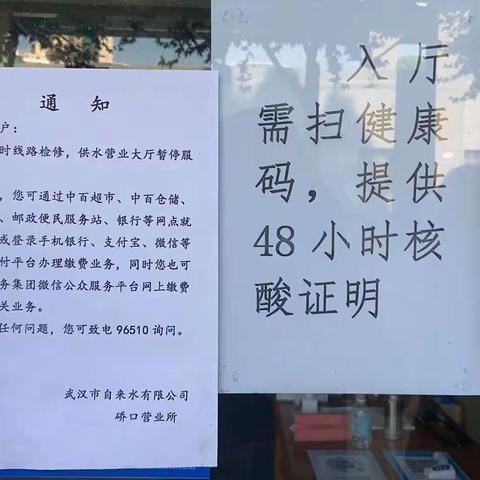 通 知
户：
时线路检修，供水营业大厅暂停服
，您可通过中百超市、中百仓储、
、邮政便民服务站、银行等网点就
或登录手机银行、支付宝、微信等
付平台办理缴费业务，同时您也可
务集团微信公众服务平台网上缴费
关业务。
任何问题，您可致电 96510 询问。
武汉市自来水有限公司
硚口营业所
入厅
需扫健康
码，提供
48 小时核
酸证明